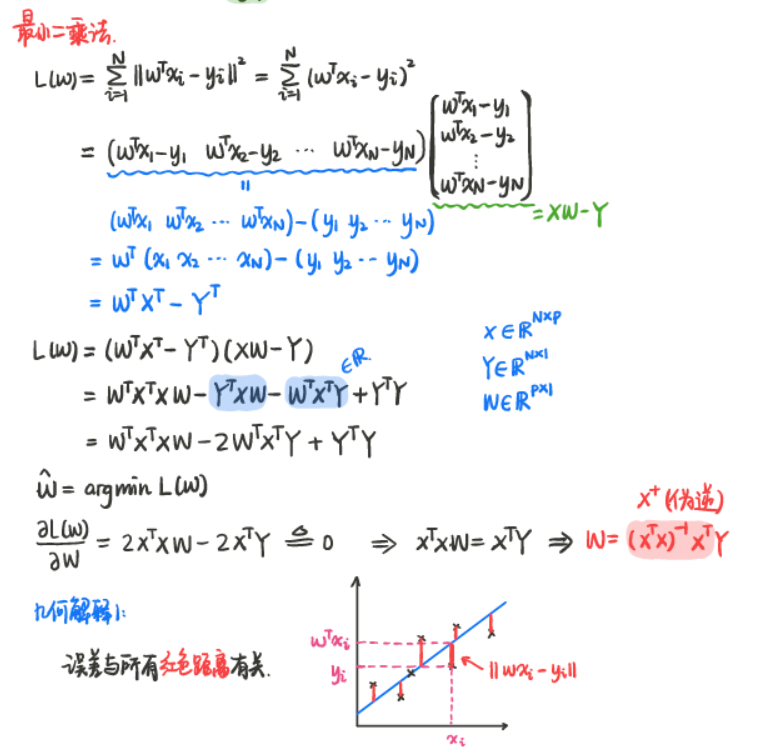 最小二乘法.
L(w) = \sum_{i=1}^{N} ||w^T x_i - y_i||^2 = \sum_{i=1}^{N} (w^T x_i - y_i)^2
= (w^T x_1 - y_1  w^T x_2 - y_2  ⋯  w^T x_N - y_N) \begin{pmatrix} w^T x_1 - y_1 \\ w^T x_2 - y_2 \\ ⋮ \\ w^T x_N - y_N \end{pmatrix}
= XW - Y
(w^T x_1  w^T x_2 ⋯ w^T x_N) - (y_1 y_2 ⋯ y_N)
= w^T (x_1 x_2 ⋯ x_N) - (y_1 y_2 ⋯ y_N)
= W^T X^T - Y^T
X ∈ ℝ^{N×P}
Y ∈ ℝ^{N×1}
W ∈ ℝ^{P×1}
L(w) = (W^T X^T - Y^T)(XW - Y)
∈ℝ.
= W^T X^T XW - Y^T XW - W^T X^T Y + Y^T Y
= W^T X^T XW - 2W^T X^T Y + Y^T Y
ŵ = argmin L(w)
X^+ (伪逆)
\frac{∂L(w)}{∂W} = 2X^T XW - 2X^T Y ≜ 0 ⇒ X^T XW = X^T Y ⇒ W = (X^T X)^{-1} X^T Y
几何解释1:
误差与所有红色距离有关.
w^T x_i
y_i
||w x_i - y_i||
x_i